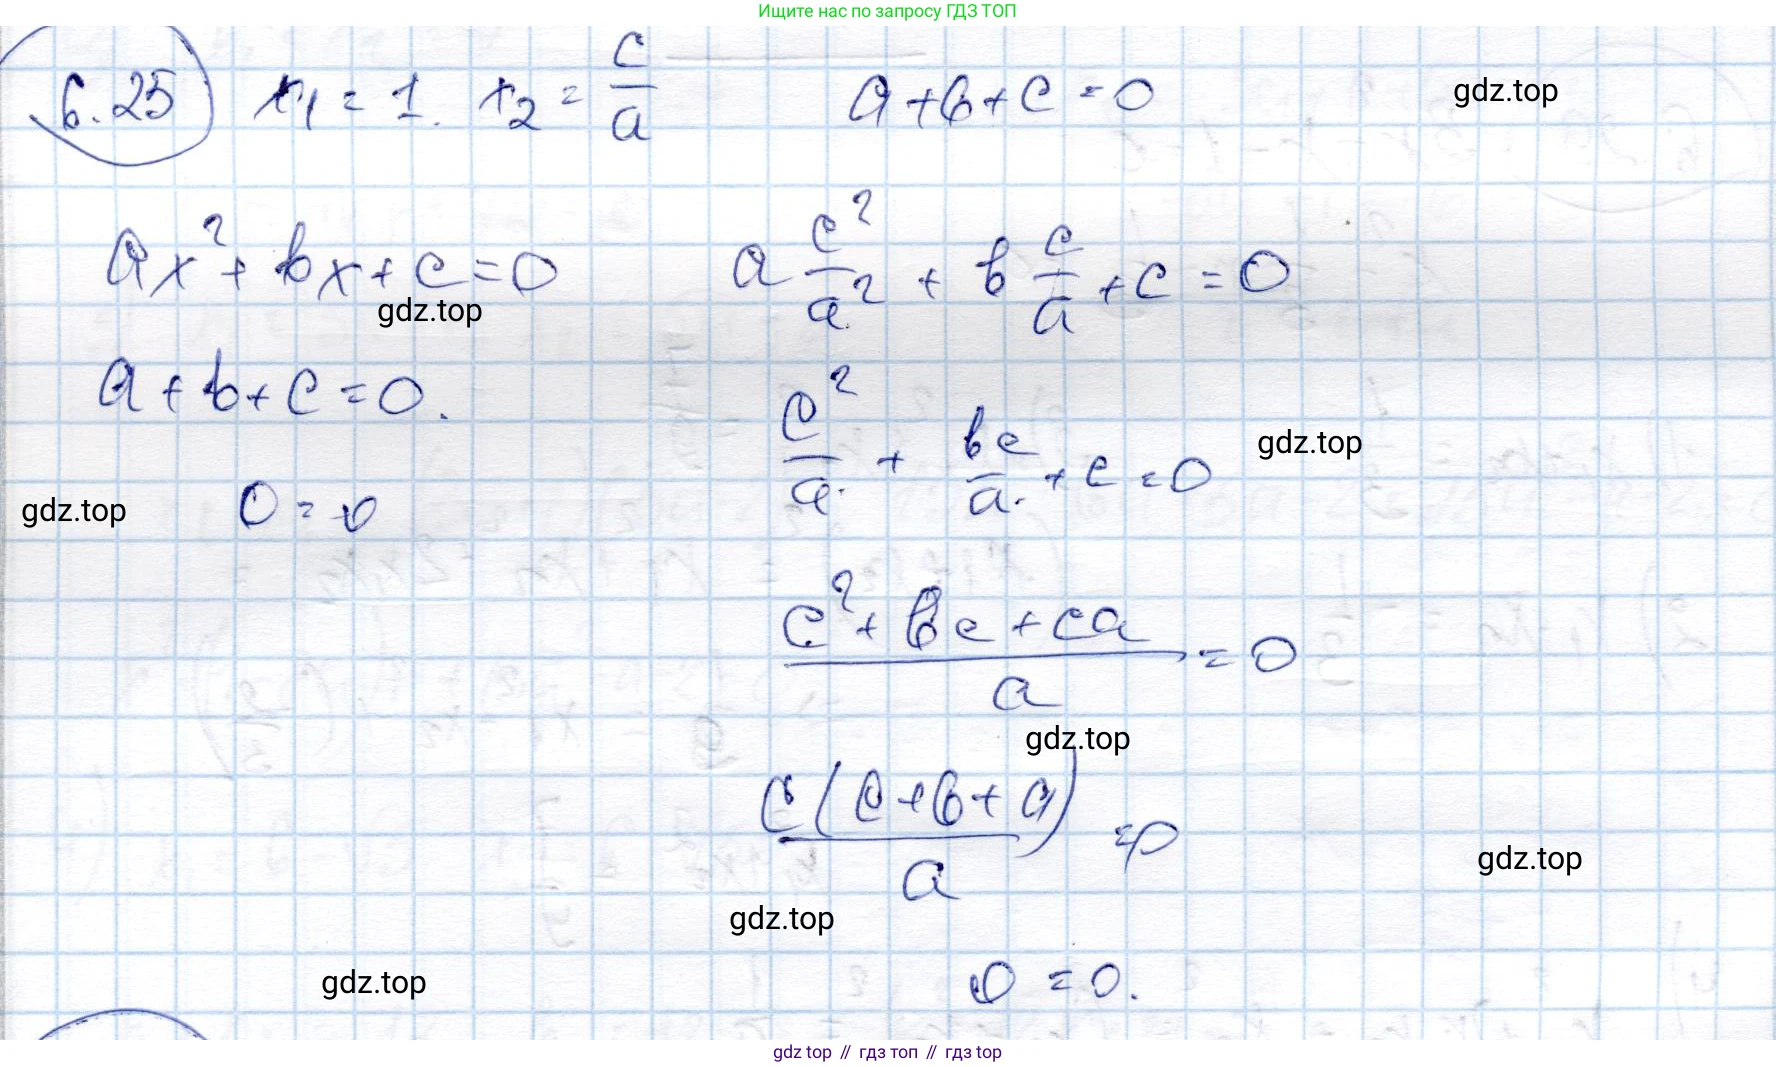 Ищите нас по запросу ГДЗ ТОП
6.25 x₁ = 1. x₂ = c/a a + b + c = 0
gdz.top
ax² + bx + c = 0 a c²/a² + b c/a + c = 0
gdz.top
a + b + c = 0. c²/a + bc/a + c = 0
gdz.top
gdz.top
0 = 0
(c² + bc + ca)/a = 0
gdz.top
c(c + b + a)/a = 0
gdz.top
gdz.top
gdz.top
0 = 0.
gdz top // гдз топ // гдз top